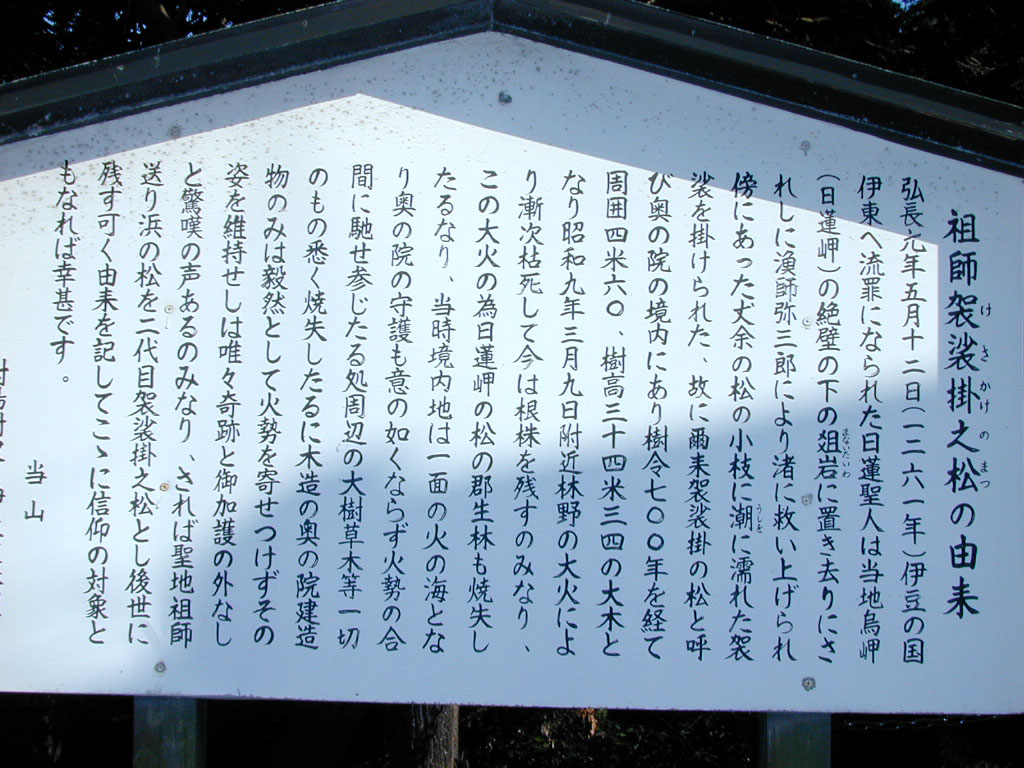 祖師袈裟掛之松の由来
けさかけのまつ
弘長元年五月十二日(一二六一年)伊豆の国
伊東へ流罪になられた日蓮聖人は当地烏岬
(日蓮岬)の絶壁の下の爼岩に置き去りにさ
まないたいわ
れしに漁師弥三郎により渚に救い上げられ
傍にあった丈余の松の小枝に潮に濡れた袈
うしを
裟を掛けられた、故に爾来袈裟掛の松と呼
び奥の院の境内にあり樹令七〇〇年を経て
周囲四米六〇、樹高三十四米三四の大木と
なり昭和九年三月九日附近林野の大火によ
り漸次枯死して今は根株を残すのみなり、
この大火の為日蓮岬の松の郡生林も焼失し
たるなり、当時境内地は一面の火の海とな
り奥の院の守護も意の如くならず火勢の合
間に馳せ参じたる処周辺の大樹草木等一切
のもの悉く焼失したるに木造の奥の院建造
物のみは毅然として火勢を寄せつけずその
姿を維持せしは唯々奇跡と御加護の外なし
と驚嘆の声あるのみなり、されば聖地祖師
送り浜の松を二代目袈裟掛之松とし後世に
残す可く由来を記してこゝに信仰の対象と
もなれば幸甚です。
当山